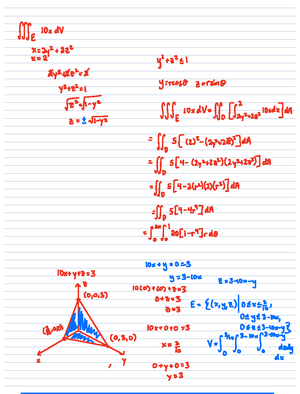 ∭_E 10x dV
x=2y²+2z²
x=2
2y²+2z²=2
y²+z²=1
√z²=√1-y²
z=±√1-y²
y²+z²≤1
y=rcosθ z=rsinθ
∭_E 10xdV=∬_D[∫_{2y²+2z²}^{2} 10xdx]dA
=∬_D 5[(2)²-(2y²+2z²)²]dA
=∬_D 5[4-(2y²+2z²)(2y²+2z²)]dA
=∬_D 5[4-2(r²)(2)(r²)]dA
=∬_D 5[4-4r⁴]dA
=∫_0^{2π}∫_0^1 20[1-r⁴]r dθ
10x+y+z=3
z
(0,0,3)
(3/10,0,0)
(0,3,0)
x
y
10x+y=0=3
y=3-10x
z=3-10x-y
10(0)+(0)+z=3
0+z=3
z=3
10x+0+0=3
x=3/10
0+y+0=3
y=2
E={(x,y,z)|0≤x≤3/10,
0≤y≤3-10x,
0≤z≤3-10x-y}
V=∫_0^{3/10}∫_0^{3-10x}∫_0^{3-10x-y} dzdy
dx